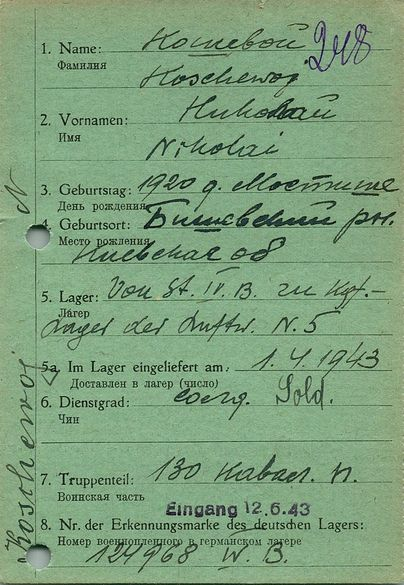 1. Name: Кошевой
Фамилия
248
Koschewoj
2. Vornamen: Николай
Имя
Nikolai
N
3. Geburtstag: 1920 д. Мостище
День рождения
4. Geburtsort: Бишевский рн.
Место рождения
Киевская об
5. Lager: Von St. IV. B. zu Kgf.-
Лагер
Lager der Luftw. N. 5
5a. Im Lager eingeliefert am: 1. 4. 1943
Доставлен в лагер (число)
6. Dienstgrad: солд. Sold.
Чин
Koschewoj
7. Truppenteil: 130 кавал. п.
Воинская часть
Eingang 12.6.43
8. Nr. der Erkennungsmarke des deutschen Lagers:
Номер военнопленного в германском лагере
124968 W. B.